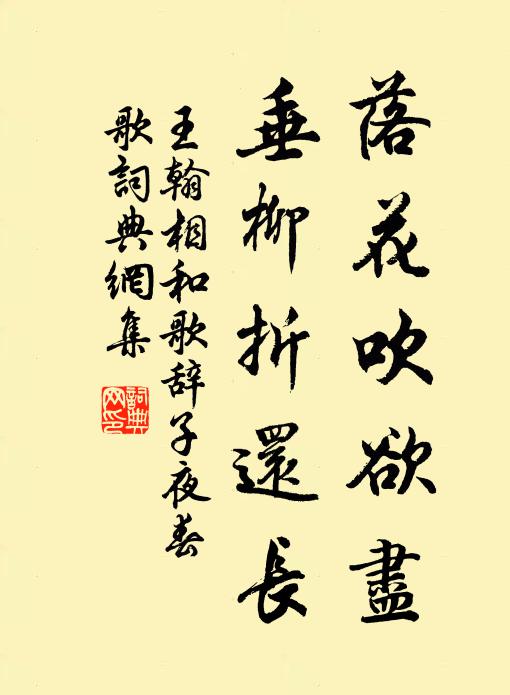 落花吹欲盡
垂柳折還長
王翰相和歌辞子夜春
歌詞典網集
詞典
网印